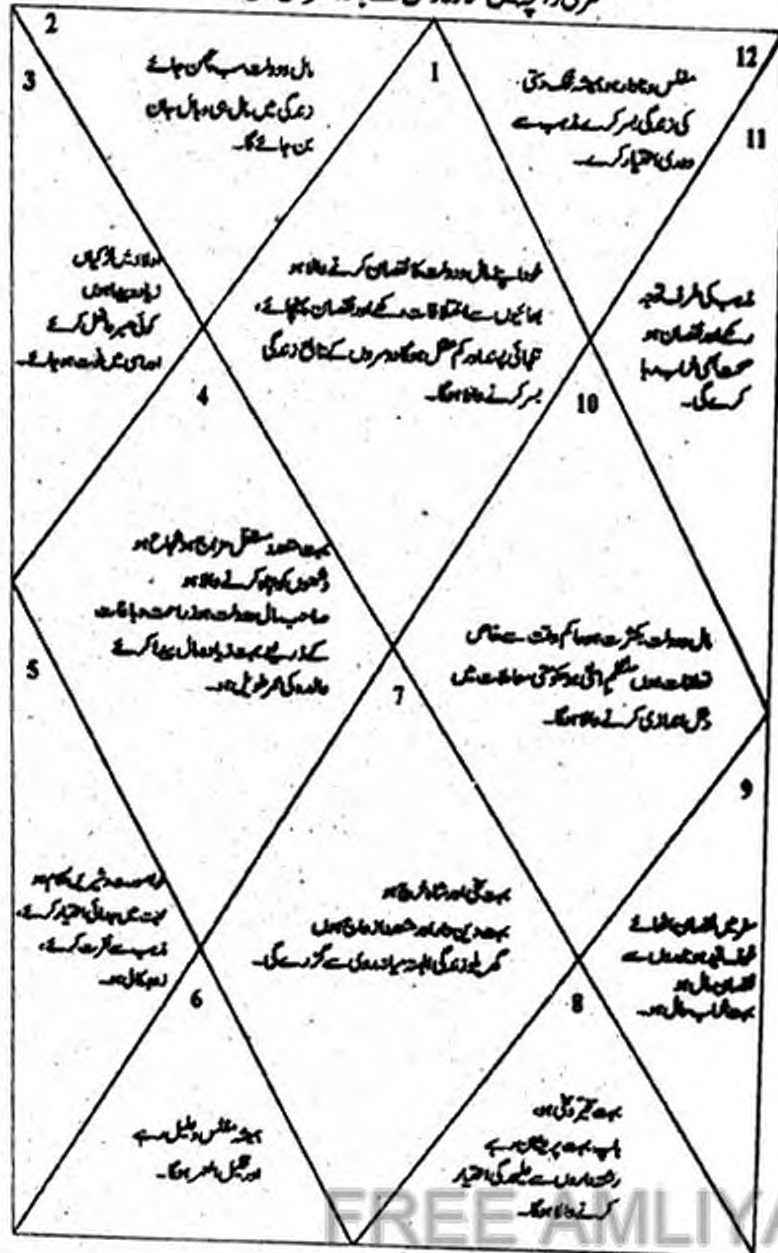 2
3
مال و دولت سب چھن جائے
زندگی میں مال ہی وبال جان
بن جائے گا۔
1
12
11
مفلس و نادار ہو ہمیشہ تنگ دستی
کی زندگی بسر کرے مذہب سے
دوری اختیار کرے۔
اولاد میں لڑکیاں
زیادہ پیدا ہوں
کوئی ہنر حاصل کرے
اور اسی میں شہرت ہو جائے۔
خود اپنے مال و دولت کا نقصان کرنے والا ہو
بھائیوں سے اختلافات رکھے اور نقصان پہنچائے،
تنہائی پسند اور کم عقل ہوگا دوسروں کے تابع زندگی
بسر کرنے والا ہوگا۔
مذہب کی طرف توجہ
رکھے اور نقصان ہو
صحت بھی خراب رہا
کرے گی۔
4
10
بہت مستقل مزاج ہو شجاع ہو
دشمنوں کو تباہ کرنے والا ہو
صاحب مال و دولت ہو زراعت و باغات
کے ذریعے بہت زیادہ مال پیدا کرے
والدہ کی عمر طویل ہو۔
5
7
مال و دولت بکثرت ہو حاکم وقت سے خاص
تعلقات ہوں منتظم اعلیٰ ہو حکومتی معاملات میں
دخل اندازی کرنے والا ہوگا۔
9
خوبصورت و شیریں کلام ہو
محبت میں جدائی اختیار کرے،
مذہب سے نفرت کرے،
بہت سخی اور شاہ خرچ ہو
بہت دین دار اور متعدد ازدواج ہوں
گھریلو زندگی البتہ میانہ روی سے گزرے گی۔
سفر میں نقصان اٹھائے
نقصان مال ہو
6
8
ہمیشہ مفلس و علیل رہے
اور قلیل العمر ہوگا۔
بہت
باپ بہت پریشان رہے
رشتہ داروں سے علیحدگی اختیار
کرنے والا ہوگا۔
FREE AMLIYA